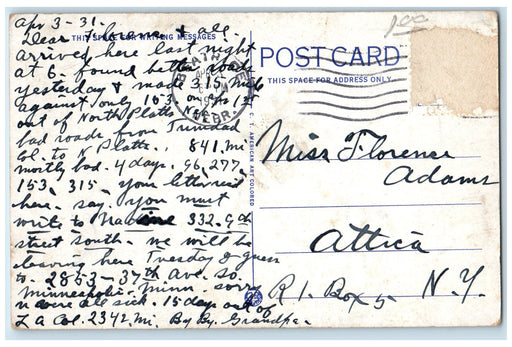 Apr 3-31.
Dear Florence & all.
THIS SPACE FOR WRITING MESSAGES
arrived here last night
at 6. found better roads
yesterday & made 315. mi
against only 153 on the 1st
out of North Platte
bad roads from Trinidad
Col. to N Platte.. 841. mi
mostly bad. 4 days. 96, 277,
153, 315. your letter recd
here. say. you must
write to 332. 9th
street South. we will be
leaving here Tuesday I guess
to. 2853-37th Ave. So.
Minneapolis. Minn. sorry
u were all sick. 15 days out of
L A Cal. 2342. mi. By By. Grandpa.
POST CARD
THIS SPACE FOR ADDRESS ONLY
NEBR.
C. T. AMERICAN ART COLORED
100
Miss Florence
Adams
Attica
R 1. Box 5 N.Y.